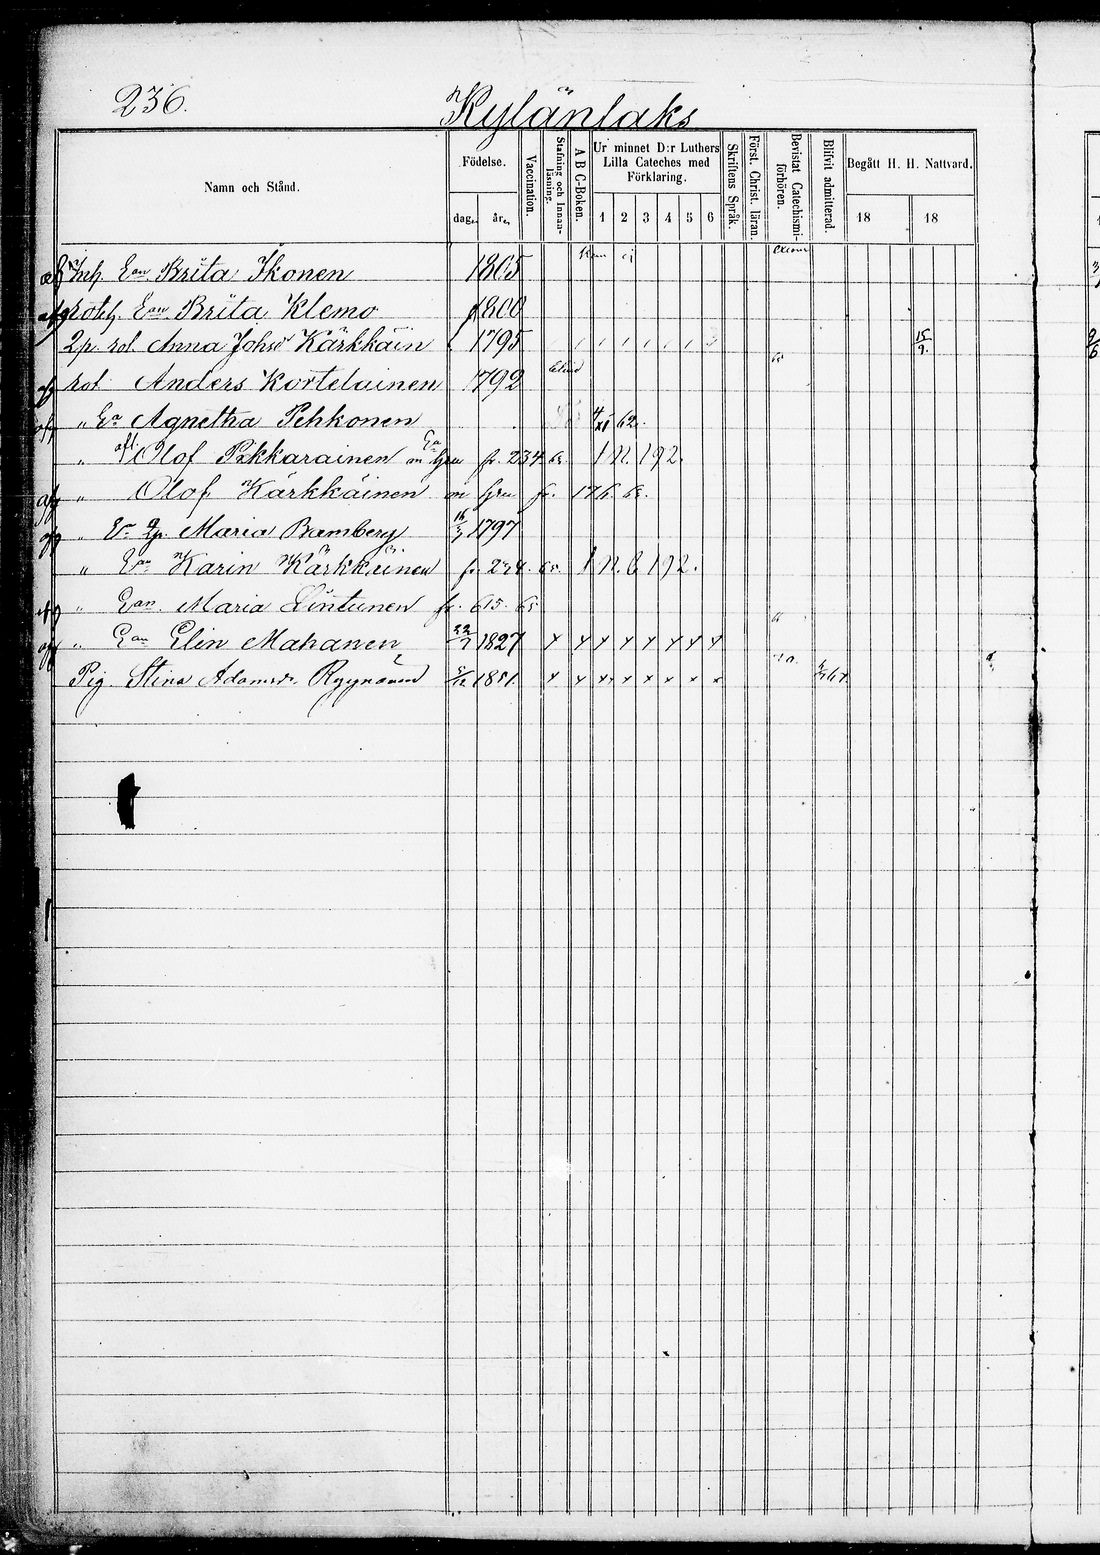 236.
Kylänlaks
Namn och Stånd.
Födelse.
dag.
år.
Vaccination.
Stafning och Innanläsning.
A B C-Boken.
Ur minnet D:r Luthers Lilla Cateches med Förklaring.
1 2 3 4 5 6
Skriftens Språk.
Först. Christ. läran.
Bevistat Catechismiförhören.
Blifvit admitterad.
Begått H. H. Nattvard.
18 18
Inh. Ean Brita Ikonen 1805
roth. Ean Brita Klemo 1800
2p. rot. Anna Johsdr Kärkkäin 1795 15/9.
rot Anders Kortelainen 1792 blind
" Ea Agnetha Pehkonen 4/XI 62.
" afl. Olof Pekkarainen m Gru fr. 234. 63. 1 N. 192.
" Olof Kärkkäinen m Gru fr. 176. 63.
" Ea Maria Bamberg 16/3 1797
" Ean Karin Kärkkäinen fr. 65. 1 N. 6 192.
" Ean. Maria Lintunen fr. 615. 65
" Ean Elin Mahanen 22/7 1827 x x x x x x x x
Pig Stina Adamsdr Ryynänen 5/12 1851. x x x x x x x x 67.